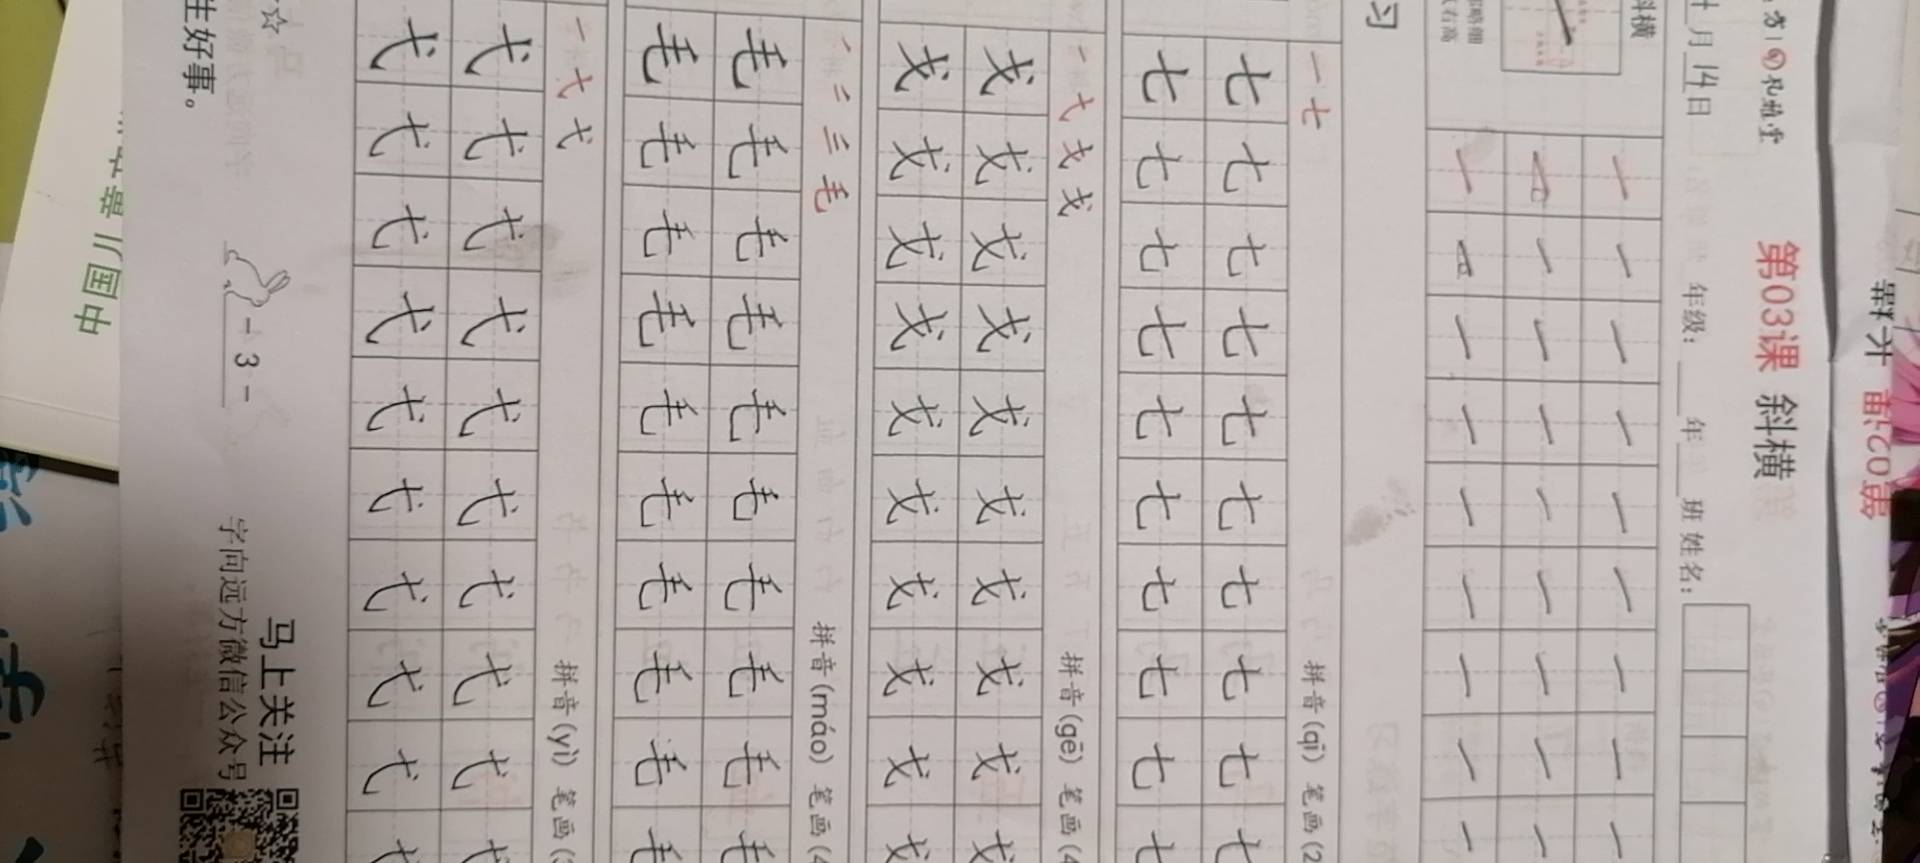 第03课 斜横
月14日 年级: 年 班 姓名:
斜横
习
一 一 一 一 一 一 一 一
一 一 一 一 一 一 一 一
一 一 一 一 一 一 一
一 七 拼音(qī) 笔画(2
七 七 七 七 七 七 七 七 七 七
七 七 七 七 七 七 七 七 七 七
戈 戈 拼音(gē) 笔画(4
戈 戈 戈 戈 戈 戈 戈 戈 戈 戈
戈 戈 戈 戈 戈 戈 戈 戈 戈 戈
一 二 三 毛 拼音(máo) 笔画(4
毛 毛 毛 毛 毛 毛 毛 毛 毛 毛
毛 毛 毛 毛 毛 毛 毛 毛 毛 毛
一 弋 弋 拼音(yì) 笔画(3
弋 弋 弋 弋 弋 弋 弋 弋 弋 弋
弋 弋 弋 弋 弋 弋 弋 弋 弋 弋
马上关注
- 3 -
字向远方微信公众号
生好事。
中国儿童